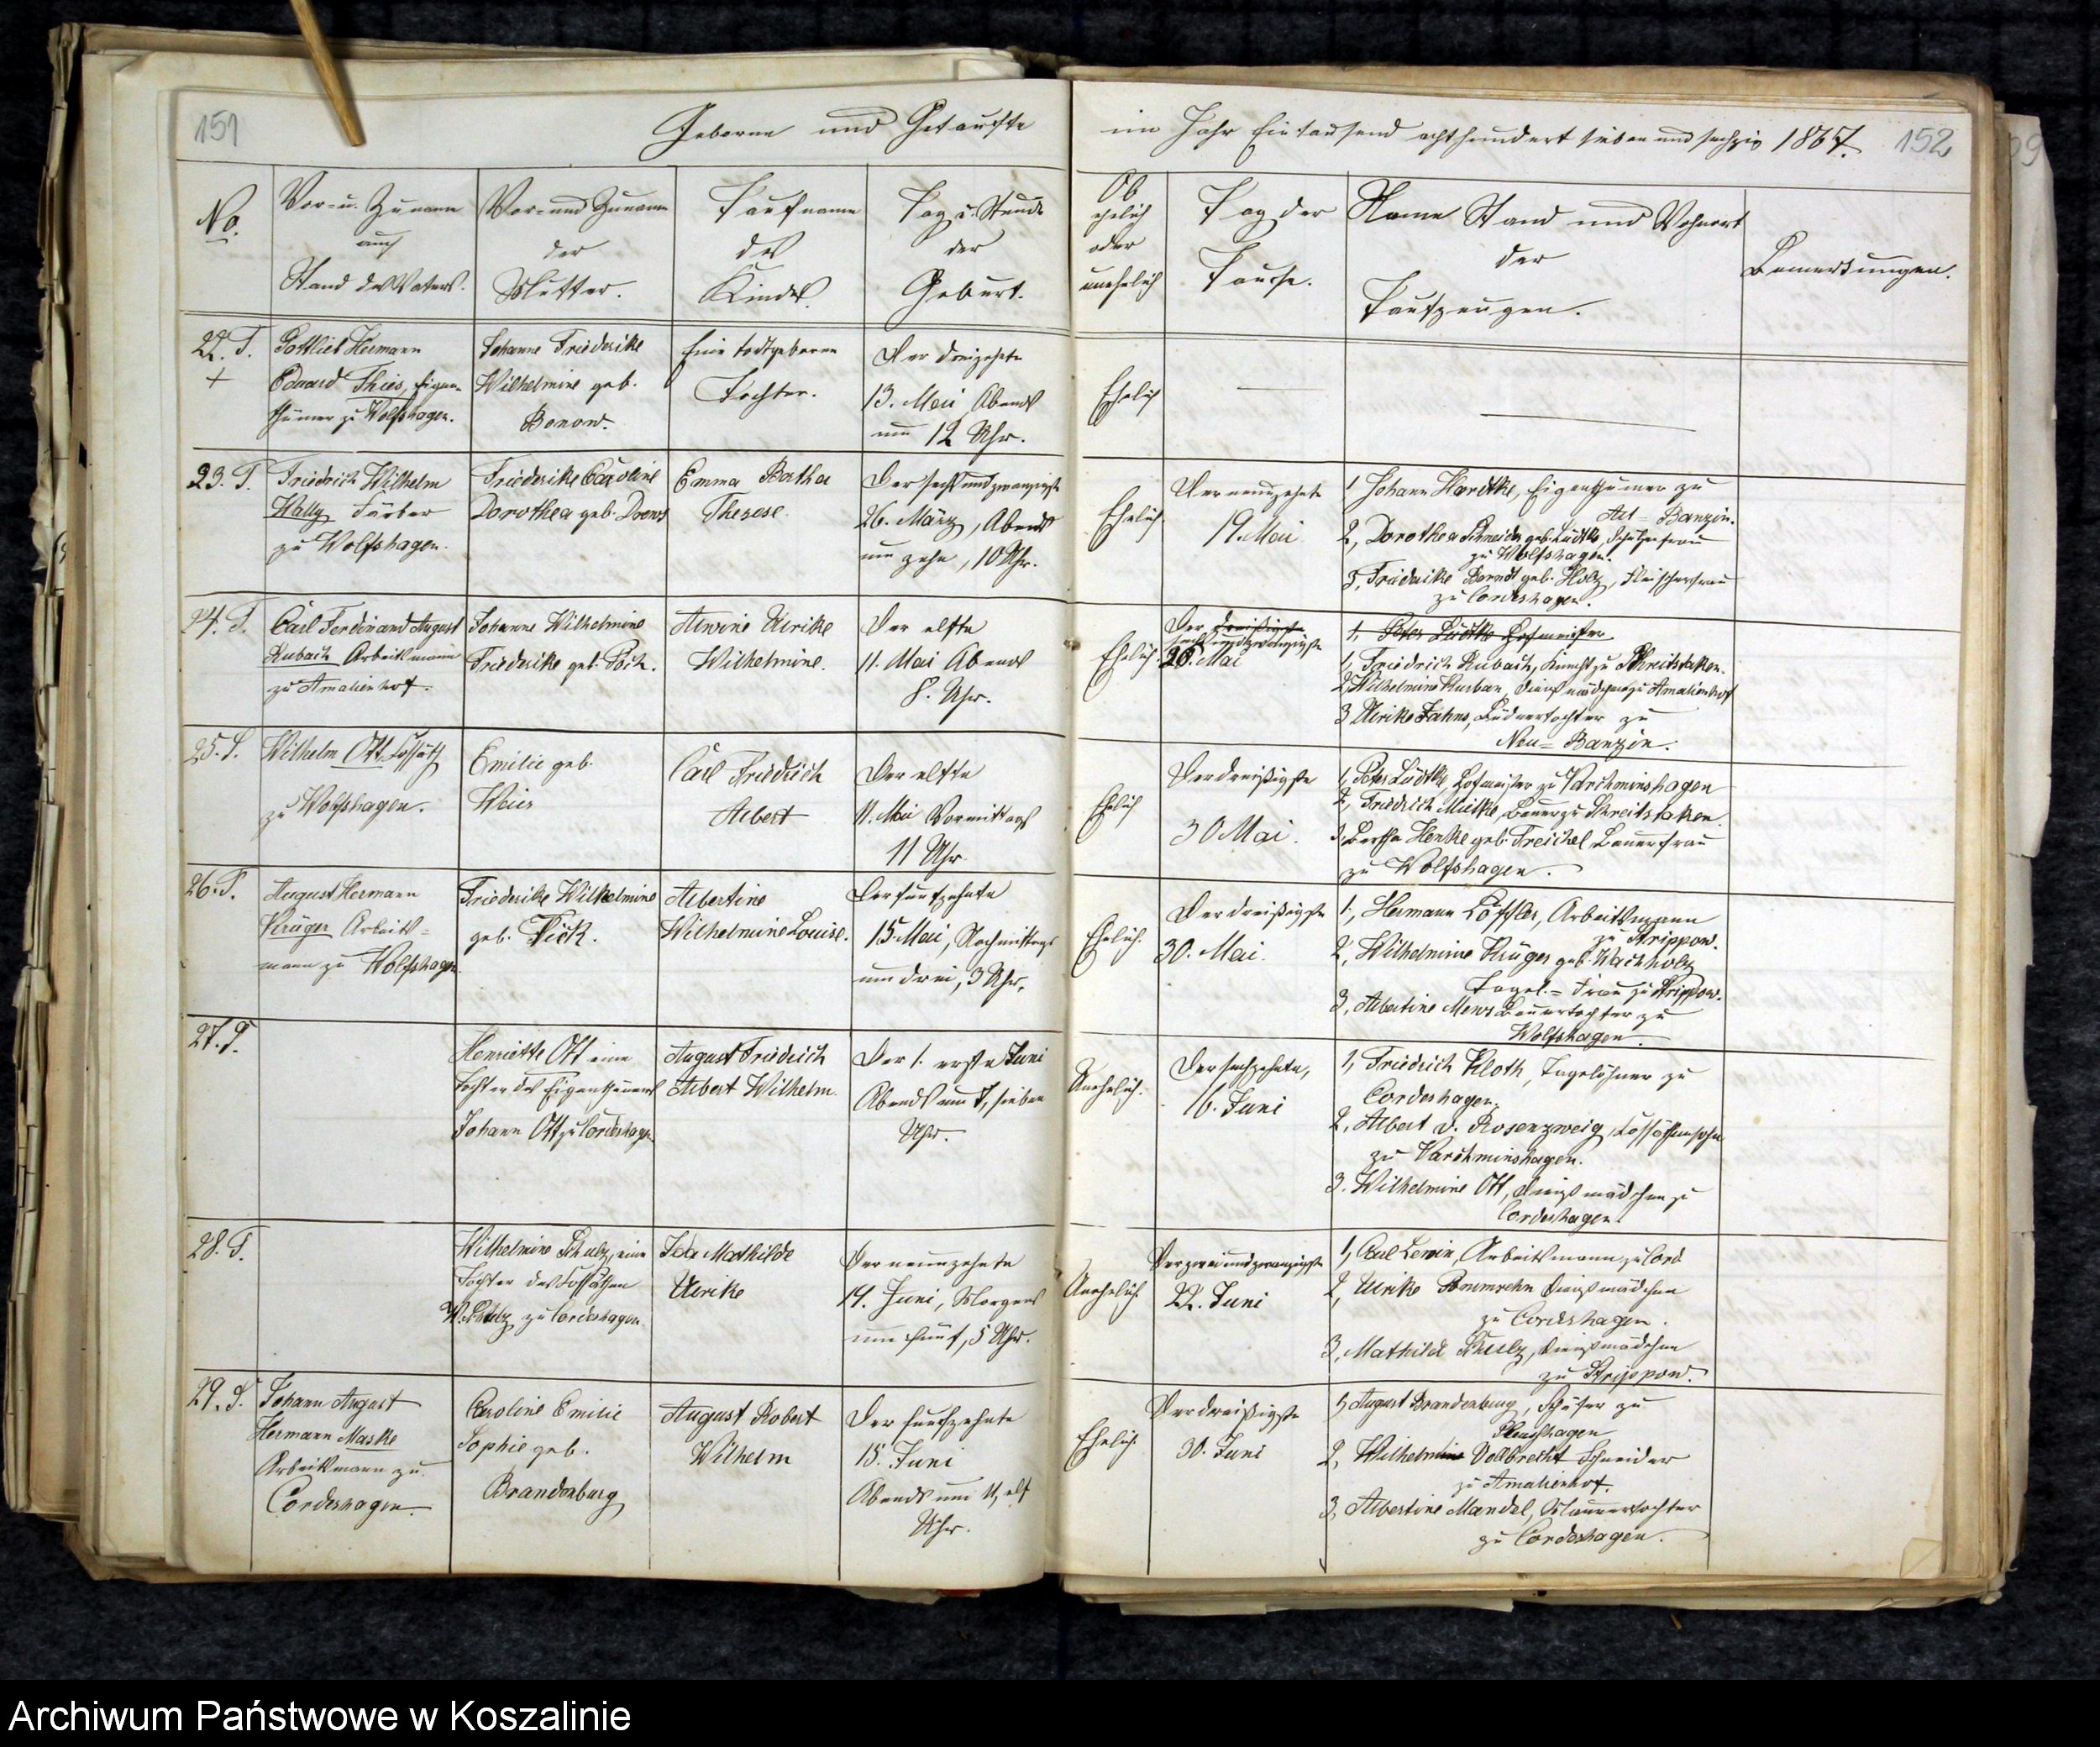 151
Geborne und Getaufte
im Jahr Eintausend achthundert sieben und sechzig 1867.
152
No.
Vor- u. Zuname
auch
Stand des Vaters.
Vor- und Zuname
der
Mutter.
Taufname
des
Kindes.
Tag u. Stunde
der
Geburt.
Ob
ehelich
oder
unehelich
Tag der
Taufe.
Name Stand und Wohnort
der
Taufzeugen.
Bemerkungen.
22. T.
+
Gottlieb Hermann
Eduard Thies, Eigen-
thümer zu Wolfshagen.
Johanne Friederike
Wilhelmine geb.
Bonow.
Eine todtgeborne
Tochter.
Der dreizehnte
13. Mai Abends
um 12 Uhr.
Ehelich
23. T.
Friedrich Wilhelm
Wally Färber
zu Wolfshagen.
Friederike Caroline
Dorothea geb. Drews
Emma Bertha
Therese.
Der sechsundzwanzigste
26. März, Abends
um zehn, 10 Uhr.
Ehelich
Der neunzehnte
19. Mai
1, Johann Hardtke, Eigenthümer zu
Alt-Banzin.
2, Dorothea Schneider geb. Lüdtke,
zu Wolfshagen.
3, Friederike Berndt geb. Holz, Fleischerfrau
zu Cordeshagen.
24. T.
Carl Ferdinand August
Rubach Arbeitsmann
zu Amalienhof.
Johanne Wilhelmine
Friederike geb. Pock.
Alwine Ulrike
Wilhelmine.
Der elfte
11. Mai Abends
8. Uhr.
Ehelich
Der dreißigste
sechsundzwanzigste
26. Mai
1, Peter Lüdtke Hofmeister
1, Friedrich Rubach, Knecht zu Streitzken.
2, Wilhelmine Kurban, Dienstmädchen zu Amalienhof
3 Ulrike Jahns, Büdnertochter zu
Neu-Banzin.
25. S.
Wilhelm Ott Cossäth
zu Wolfshagen.
Emilie geb.
Weier
Carl Friedrich
Albert
Der elfte
11. Mai Vormittags
11 Uhr.
Ehelich
Der dreißigste
30 Mai.
1, Peter Lüdtke, Hofmeister zu Varchminshagen
2, Friedrich Mielke, Bauer zu
3, Bertha Henke geb. Treichel Bauerfrau
zu Wolfshagen.
26. T.
August Hermann
Krüger Arbeits-
mann zu Wolfshagen.
Friederike Wilhelmine
geb. Fick.
Albertine
Wilhelmine Louise.
Der fünfzehnte
15 Mai, Nachmittags
um drei, 3 Uhr.
Ehelich.
Der dreißigste
30. Mai.
1, Hermann Löffler, Arbeitsmann
zu Strippow.
2, Wilhelmine Krüger geb. Wachholz
Tagel.-Frau zu Strippow.
3, Albertine Mews Bauertochter zu
Wolfshagen.
27. S.
Henriette Ott eine
Tochter des Eigenthümers
Johann Ott zu Cordeshagen
August Friedrich
Albert Wilhelm.
Der 1. erste Juni
Abends um 7, sieben
Uhr.
Unehelich.
Der sechzehnte,
16. Juni
1, Friedrich Kloth, Tagelöhner zu
Cordeshagen.
2, Albert v. Rosenzweig, Cossäthensohn
zu Varchminshagen.
3. Wilhelmine Ott, Dienstmädchen zu
Cordeshagen.
28. T.
Wilhelmine Schulz, eine
Tochter des Cossäthen
W. Schulz zu Cordeshagen.
Ida Mathilde
Ulrike
Der neunzehnte
19. Juni, Morgens
um fünf, 5 Uhr.
Unehelich
Der zweiundzwanzigste
22. Juni
1, Carl Lenin, Arbeitsmann zu Cord
2, Ulrike Dienstmädchen
zu Cordeshagen.
3, Mathilde Schulz, Dienstmädchen
zu Strippow.
29. S.
Johann August
Hermann Maske
Arbeitsmann zu
Cordeshagen.
Caroline Emilie
Sophie geb.
Brandenburg
August Robert
Wilhelm
Der fünfzehnte
15. Juni
Abends um 11, elf
Uhr.
Ehelich
Der dreißigste
30. Juni
1, August Brandenburg, Schäfer zu
2, Wilhelm Vollbrecht Schneider
zu Amalienhof.
3, Albertine Mandel, Maurertochter
zu Cordeshagen.
Archiwum Państwowe w Koszalinie